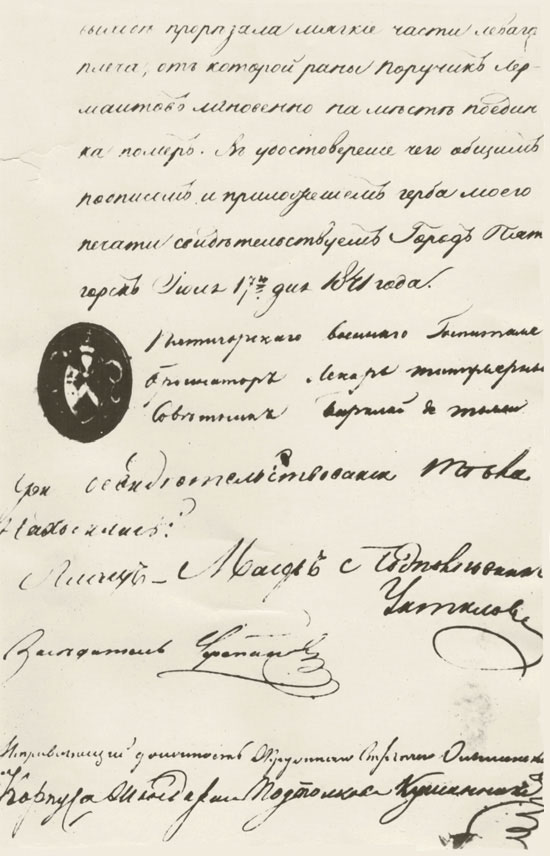 вылетѣ прорѣзала мягкіе части лѣваго
плеча; отъ которой раны Поручикъ Лер-
мантовъ мгновенно на мѣстѣ поедин-
ка померъ. Въ удостовереніе чего общимъ
посписомъ и приложеніемъ герба моего
печати свидѣтельствуемъ Городъ Пяти-
горскъ Іюля 17го дня 1841 года.
Пятигорскаго военнаго Госпиталя
Ординаторъ Лекарь титулярный
Совѣтникъ Барклай де толли
При освидѣтельствованіи тѣла
Находились:
Плацъ-Маіоръ Подполковникъ
Унтиловъ
Заседатель Черепановъ
Исправляющій должность Окружнаго Штаба Офицера
Корпуса Жандармъ Подполковникъ Кушинниковъ